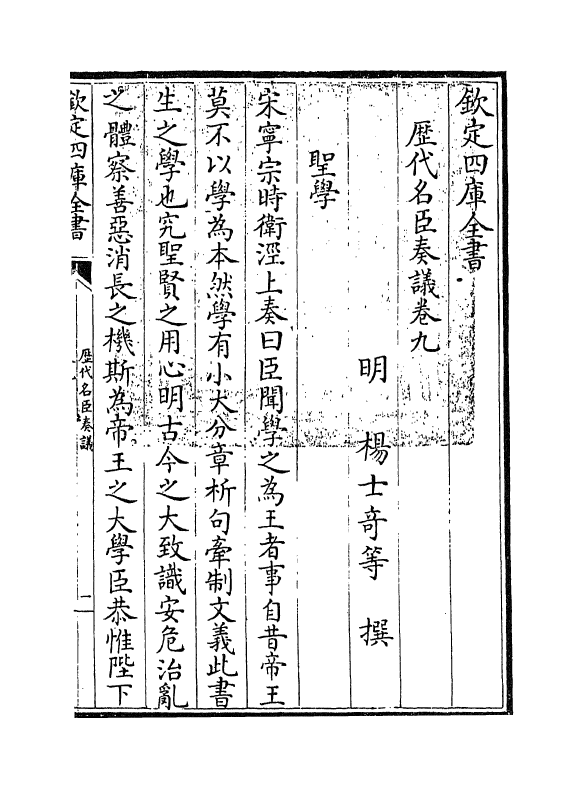 欽定四庫全書
歴代名臣奏議卷九
明　楊士奇等　撰
聖學
宋寧宗時衛涇上奏曰臣聞學之為王者事自昔帝王
莫不以學為本然學有小大分章析句牽制文義此書
生之學也究聖賢之用心明古今之大致識安危治亂
之體察善惡消長之機斯為帝王之大學臣恭惟陛下
欽定四庫全書
歴代名臣奏議